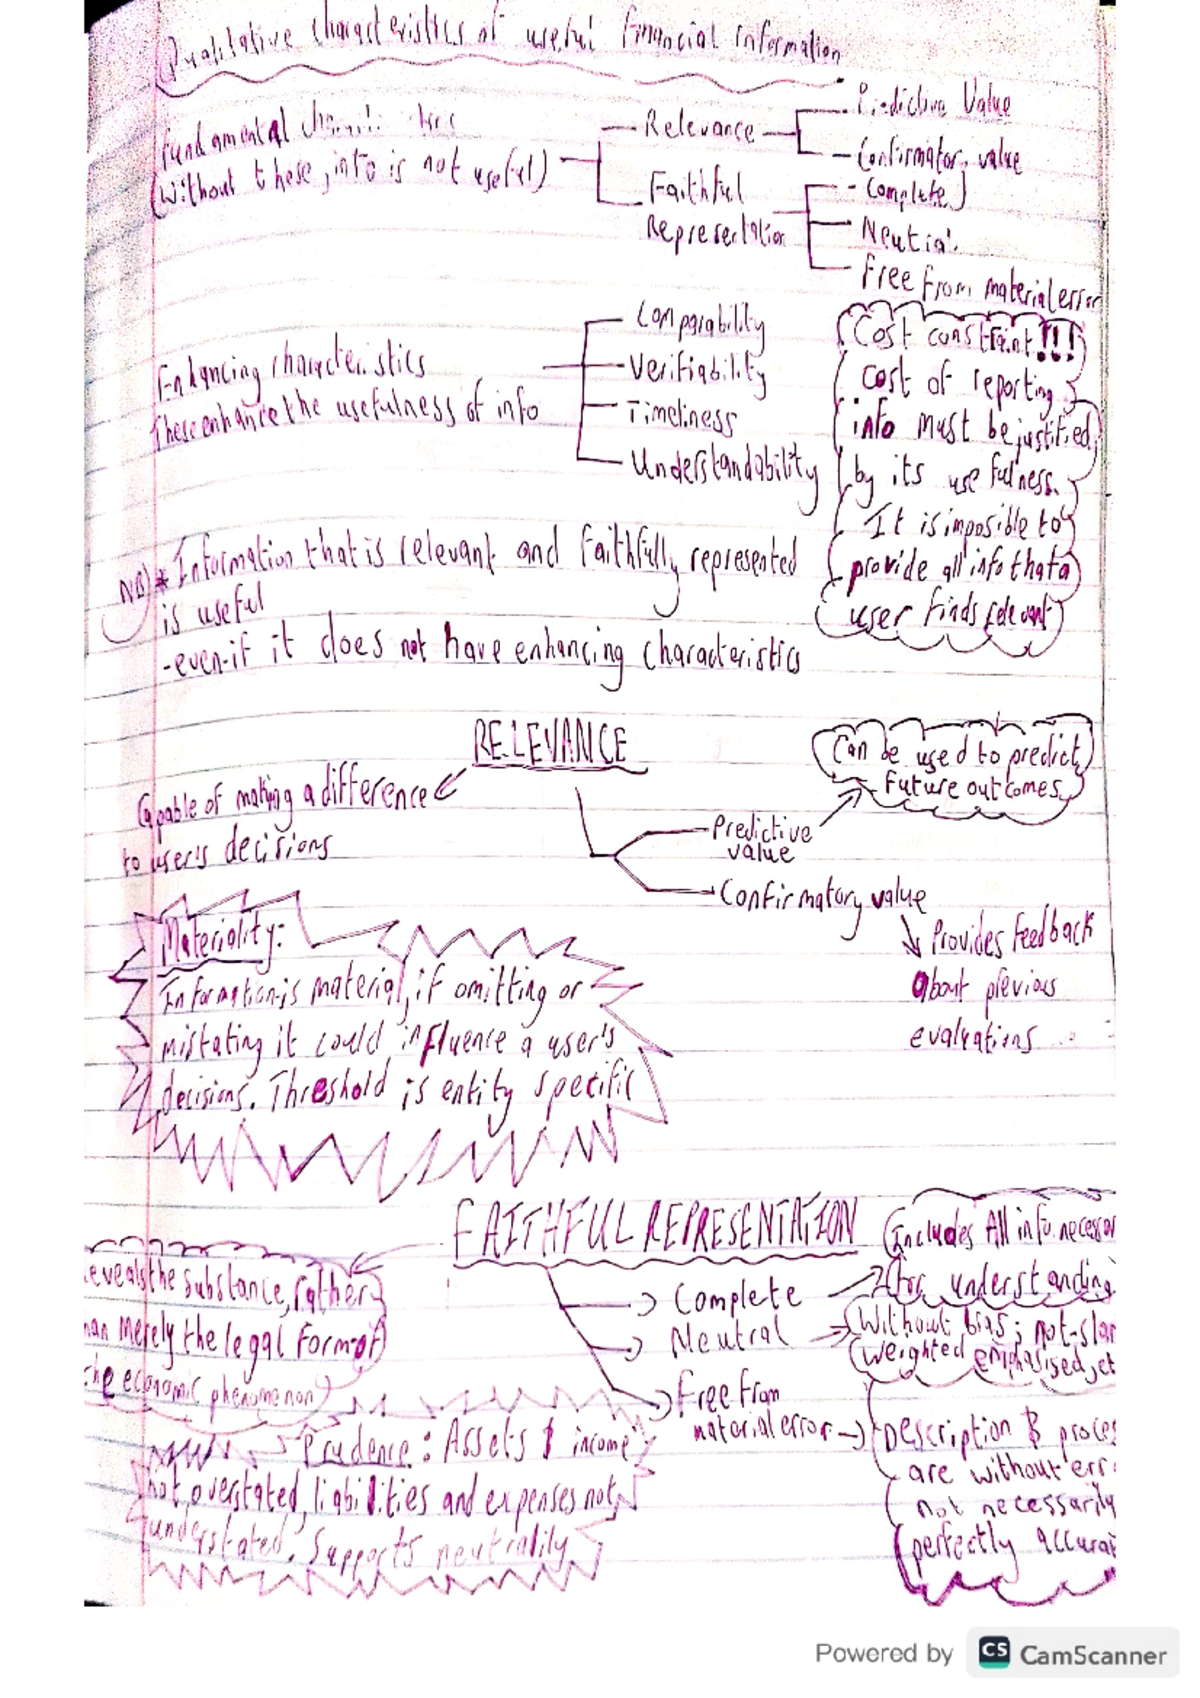 Qualitative characteristics of useful financial information
Fundamental
(Without these, info is not useful)
Relevance
Predictive Value
Confirmatory value
Faithful
Representation
Complete
Neutral
Free from material error
Enhancing characteristics
These enhance the usefulness of info
Comparability
Verifiability
Timeliness
Understandability
Cost constraint!!!
cost of reporting
info must be justified
by its usefulness.
It is imposible to
provide all info that a
user finds relevant
NB) * Information that is relevant and faithfully represented
is useful
-even-if it does not have enhancing characteristics
RELEVANCE
Capable of making a difference
to user's decisions
Predictive
value
Can be used to predict
future outcomes
Confirmatory value
Provides feedback
about previous
evaluations
Materiality:
Information is material, if omitting or
misstating it could influence a user's
decisions. Threshold is entity specific
FAITHFUL REPRESENTATION
eveals the substance, rather
han merely the legal form of
he economic phenomenon
Complete
Includes All info necessar
for understanding
Neutral
Without bias; not-slan
weighted emphasised, et
Free from
material error
Description & proces
are without err
not necessarily
perfectly accurat
Prudence: Assets & income
not overstated, liabilities and expenses not
understated. Supports neutrality
Powered by CS CamScanner